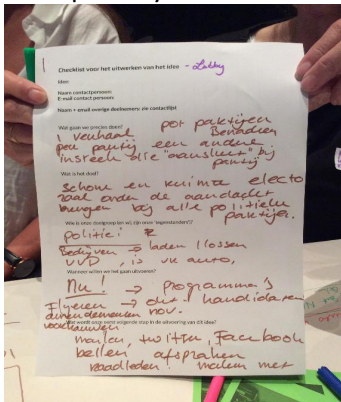 Checklist voor het uitwerken van het idee - Lobby
Idee:
Naam contactpersoon:
E-mail contact persoon:
Naam + email overige deelnemers: zie contactlijst
Wat gaan we precies doen?
1 verhaal pol partijen
Benaderen
per partij een andere
insteek die "aansluit" bij
partij
Wat is het doel?
Schone en ruimte electo
raal onder de aandacht
brengen bij alle politieke
partijen.
Wie is onze doelgroep (en wij zijn onze "tegenstanders")?
politici
Bedrijven → laden / lossen
VVD, is vk auto,
Wanneer willen we het gaan uitvoeren?
Nu! → programma's
Flyeren → okt kandidaten
amendementen nov.
Wat wordt onze eerst volgende stap in de uitvoering van dit idee?
mailen, twitter, Facebook
bellen afspraken
raadsleden. maken met